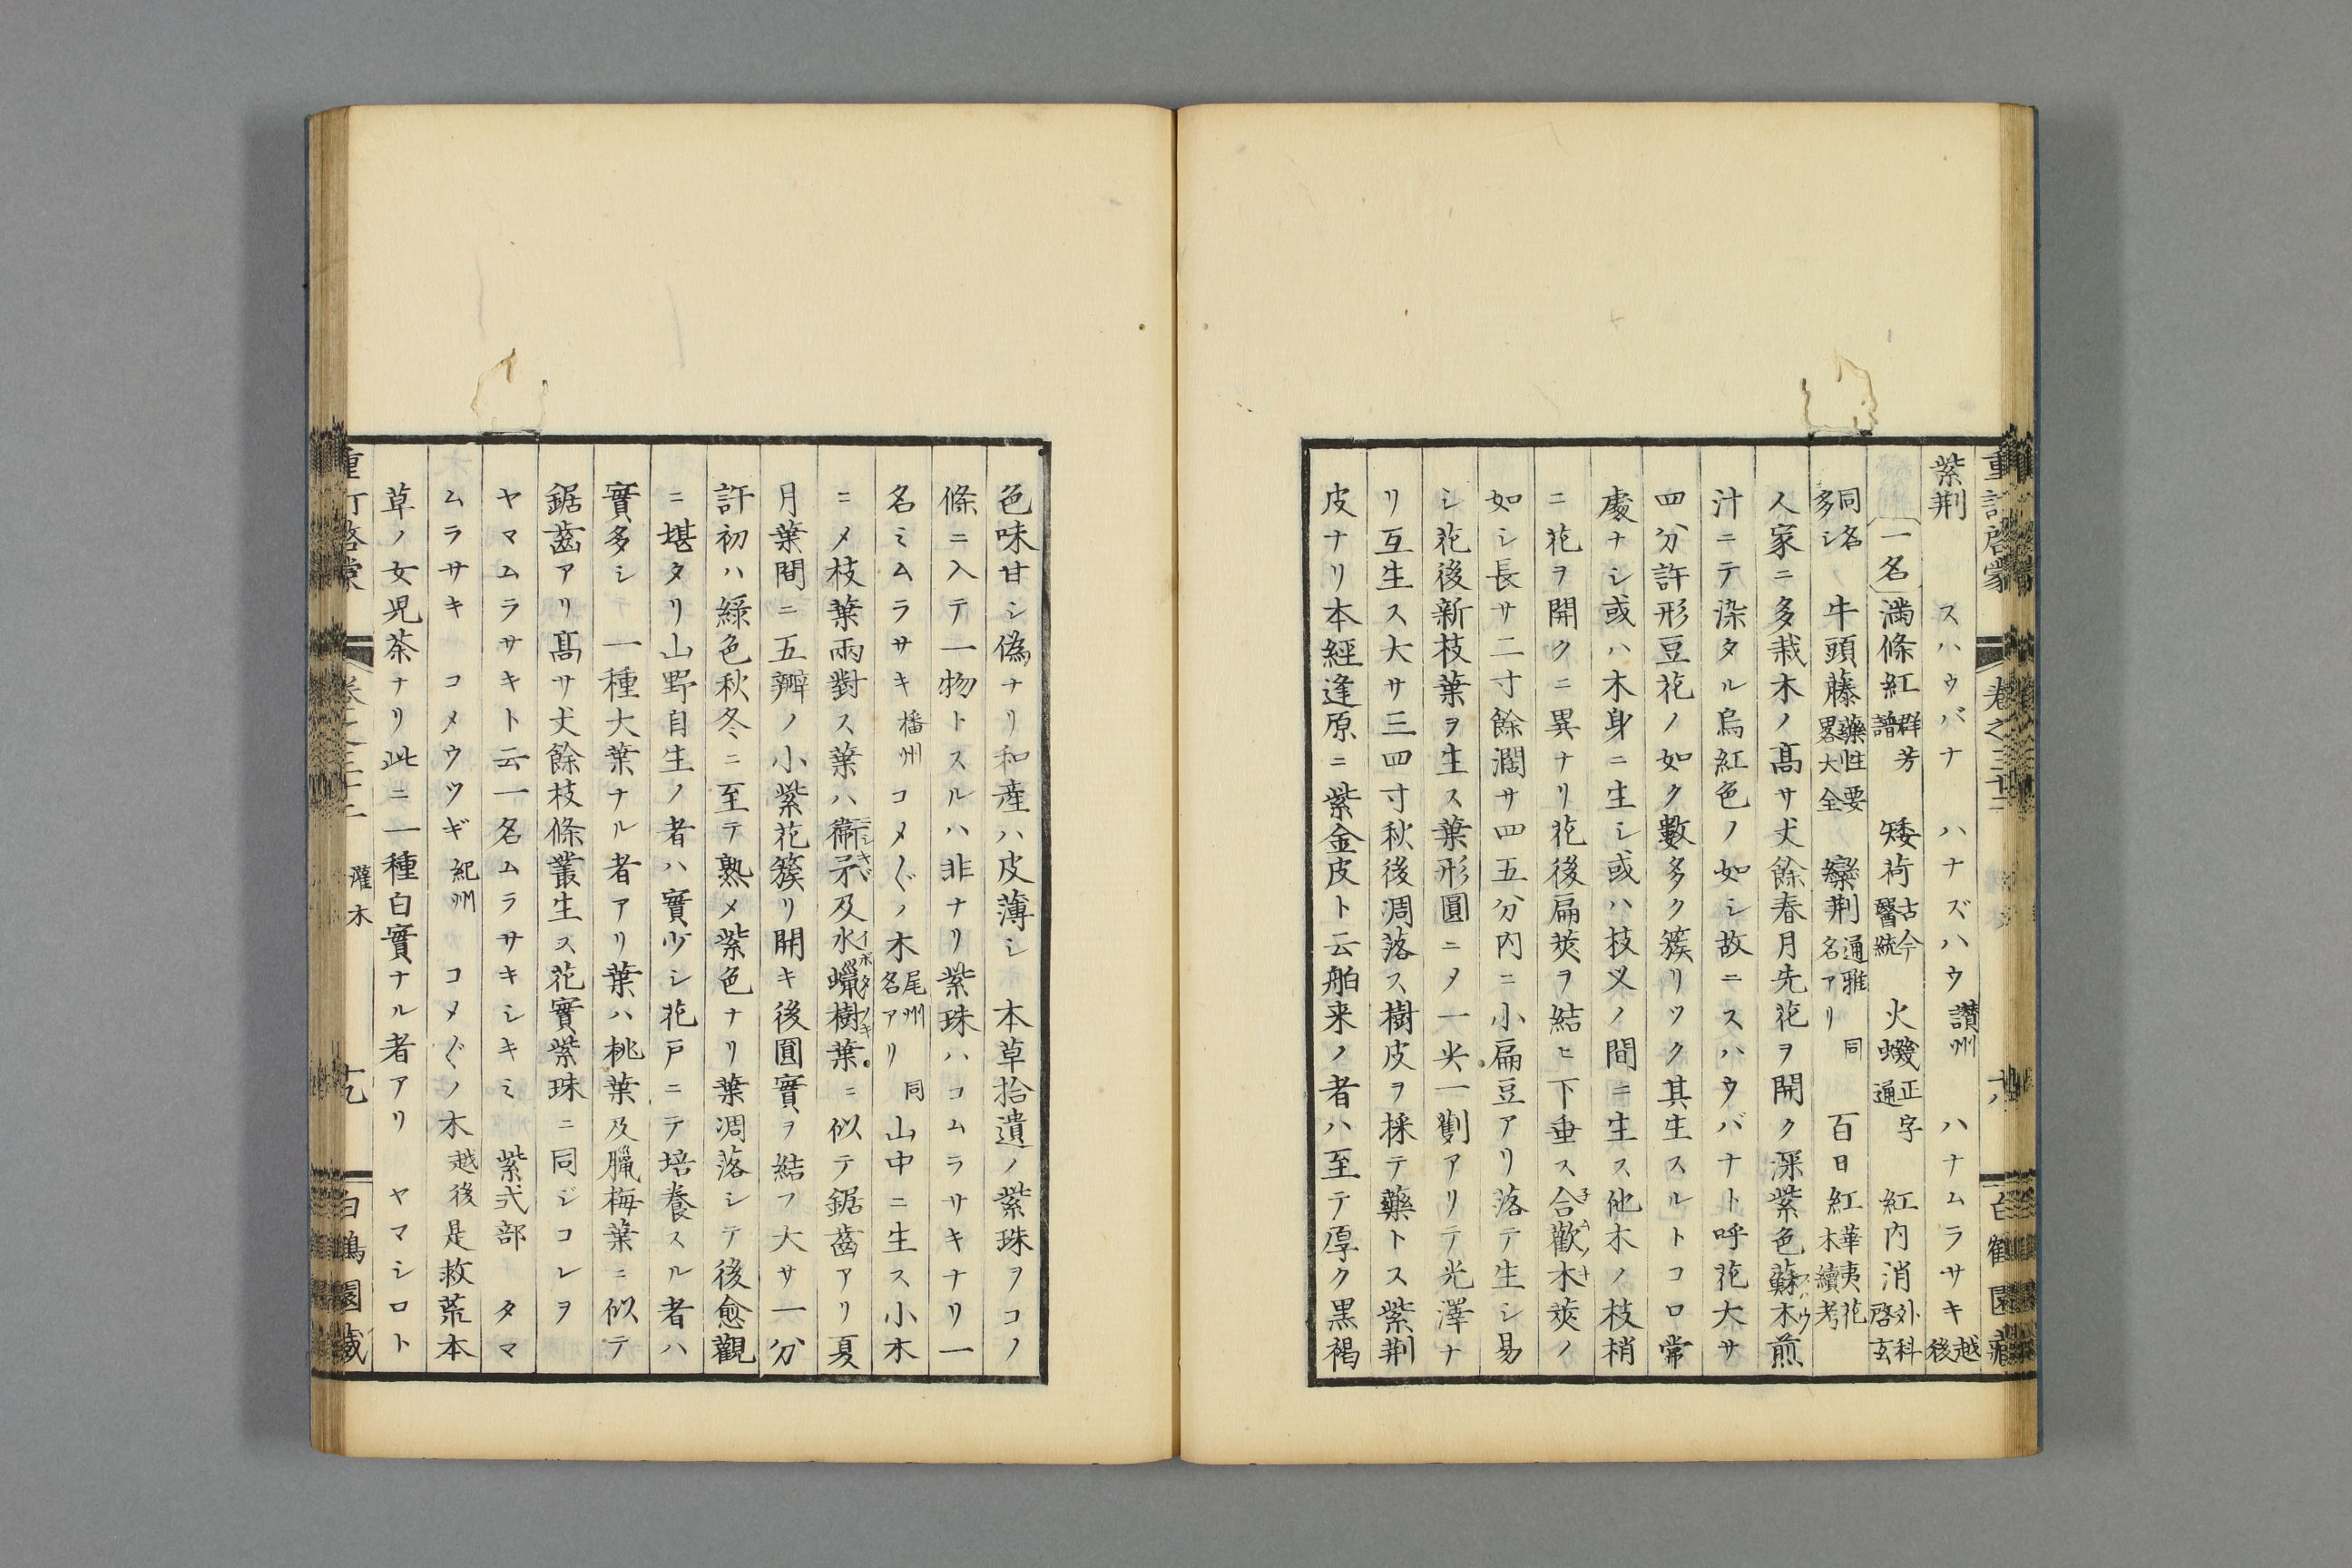 重訂啓蒙 卷之三十二 十八 白鶴園藏
紫荆 スハウバナ ハナズハウ讃州 ハナムラサキ越後
〔一名〕滿條紅群芳譜 矮荷古今醫統 火蠽正字通 紅内消外科啓玄
同名多シ 牛頭藤藥性要畧大全 蘖荆通雅同名アリ 百日紅華夷花木續考
人家ニ多栽木ノ髙サ𠀋餘春月先花ヲ開ク深紫色蘇木スハウ煎
汁ニテ染タル烏紅色ノ如シ故ニスハウバナト呼花大サ
四分許形豆花ノ如ク數多ク簇リツク其生スルトコロ常
處ナシ或ハ木身ニ生シ或ハ枝叉ノ間ニ生ス他木ノ枝梢
ニ花ヲ開クニ異ナリ花後扁莢ヲ結ヒ下垂ス合歡木子ムノキ莢ノ
如シ長サ二寸餘濶サ四五分内ニ小扁豆アリ落テ生シ易
シ花後新枝葉ヲ生ス葉形圓ニメ一尖一劐アリテ光澤ナ
リ互生ス大サ三四寸秋後凋落ス樹皮ヲ採テ藥トス紫荆
皮ナリ本經逢原ニ紫金皮ト云舶来ノ者ハ至テ厚ク黒褐
色味甘シ偽ナリ和産ハ皮薄シ 本草拾遺ノ紫珠ヲコノ
條ニ入テ一物トスルハ非ナリ紫珠ハコムラサキナリ一
名ミムラサキ播州 コメ〲ノ木尾州同名アリ 山中ニ生ス小木
ニメ枝葉兩對ス葉ハ衞矛ニシキヾ及水蠟樹イボタノキ葉ニ似テ鋸齒アリ夏
月葉間ニ五瓣ノ小紫花簇リ開キ後圓實ヲ結フ大サ一分
許初ハ綠色秋冬ニ至テ熟メ紫色ナリ葉凋落シテ後愈觀
ニ堪タリ山野自生ノ者ハ實少シ花戸ニテ培養スル者ハ
實多シ 一種大葉ナル者アリ葉ハ桃葉及臘梅葉ニ似テ
鋸齒アリ髙サ𠀋餘枝條叢生ス花實紫珠ニ同ジコレヲ
ヤマムラサキト云一名ムラサキシキミ 紫式部 タマ
ムラサキ コメウツギ紀州 コメ〲ノ木越後是救荒本
草ノ女児茶ナリ此ニ一種白實ナル者アリ ヤマシロト
重訂啓蒙 卷之三十二 灌木 十九 白鶴園藏